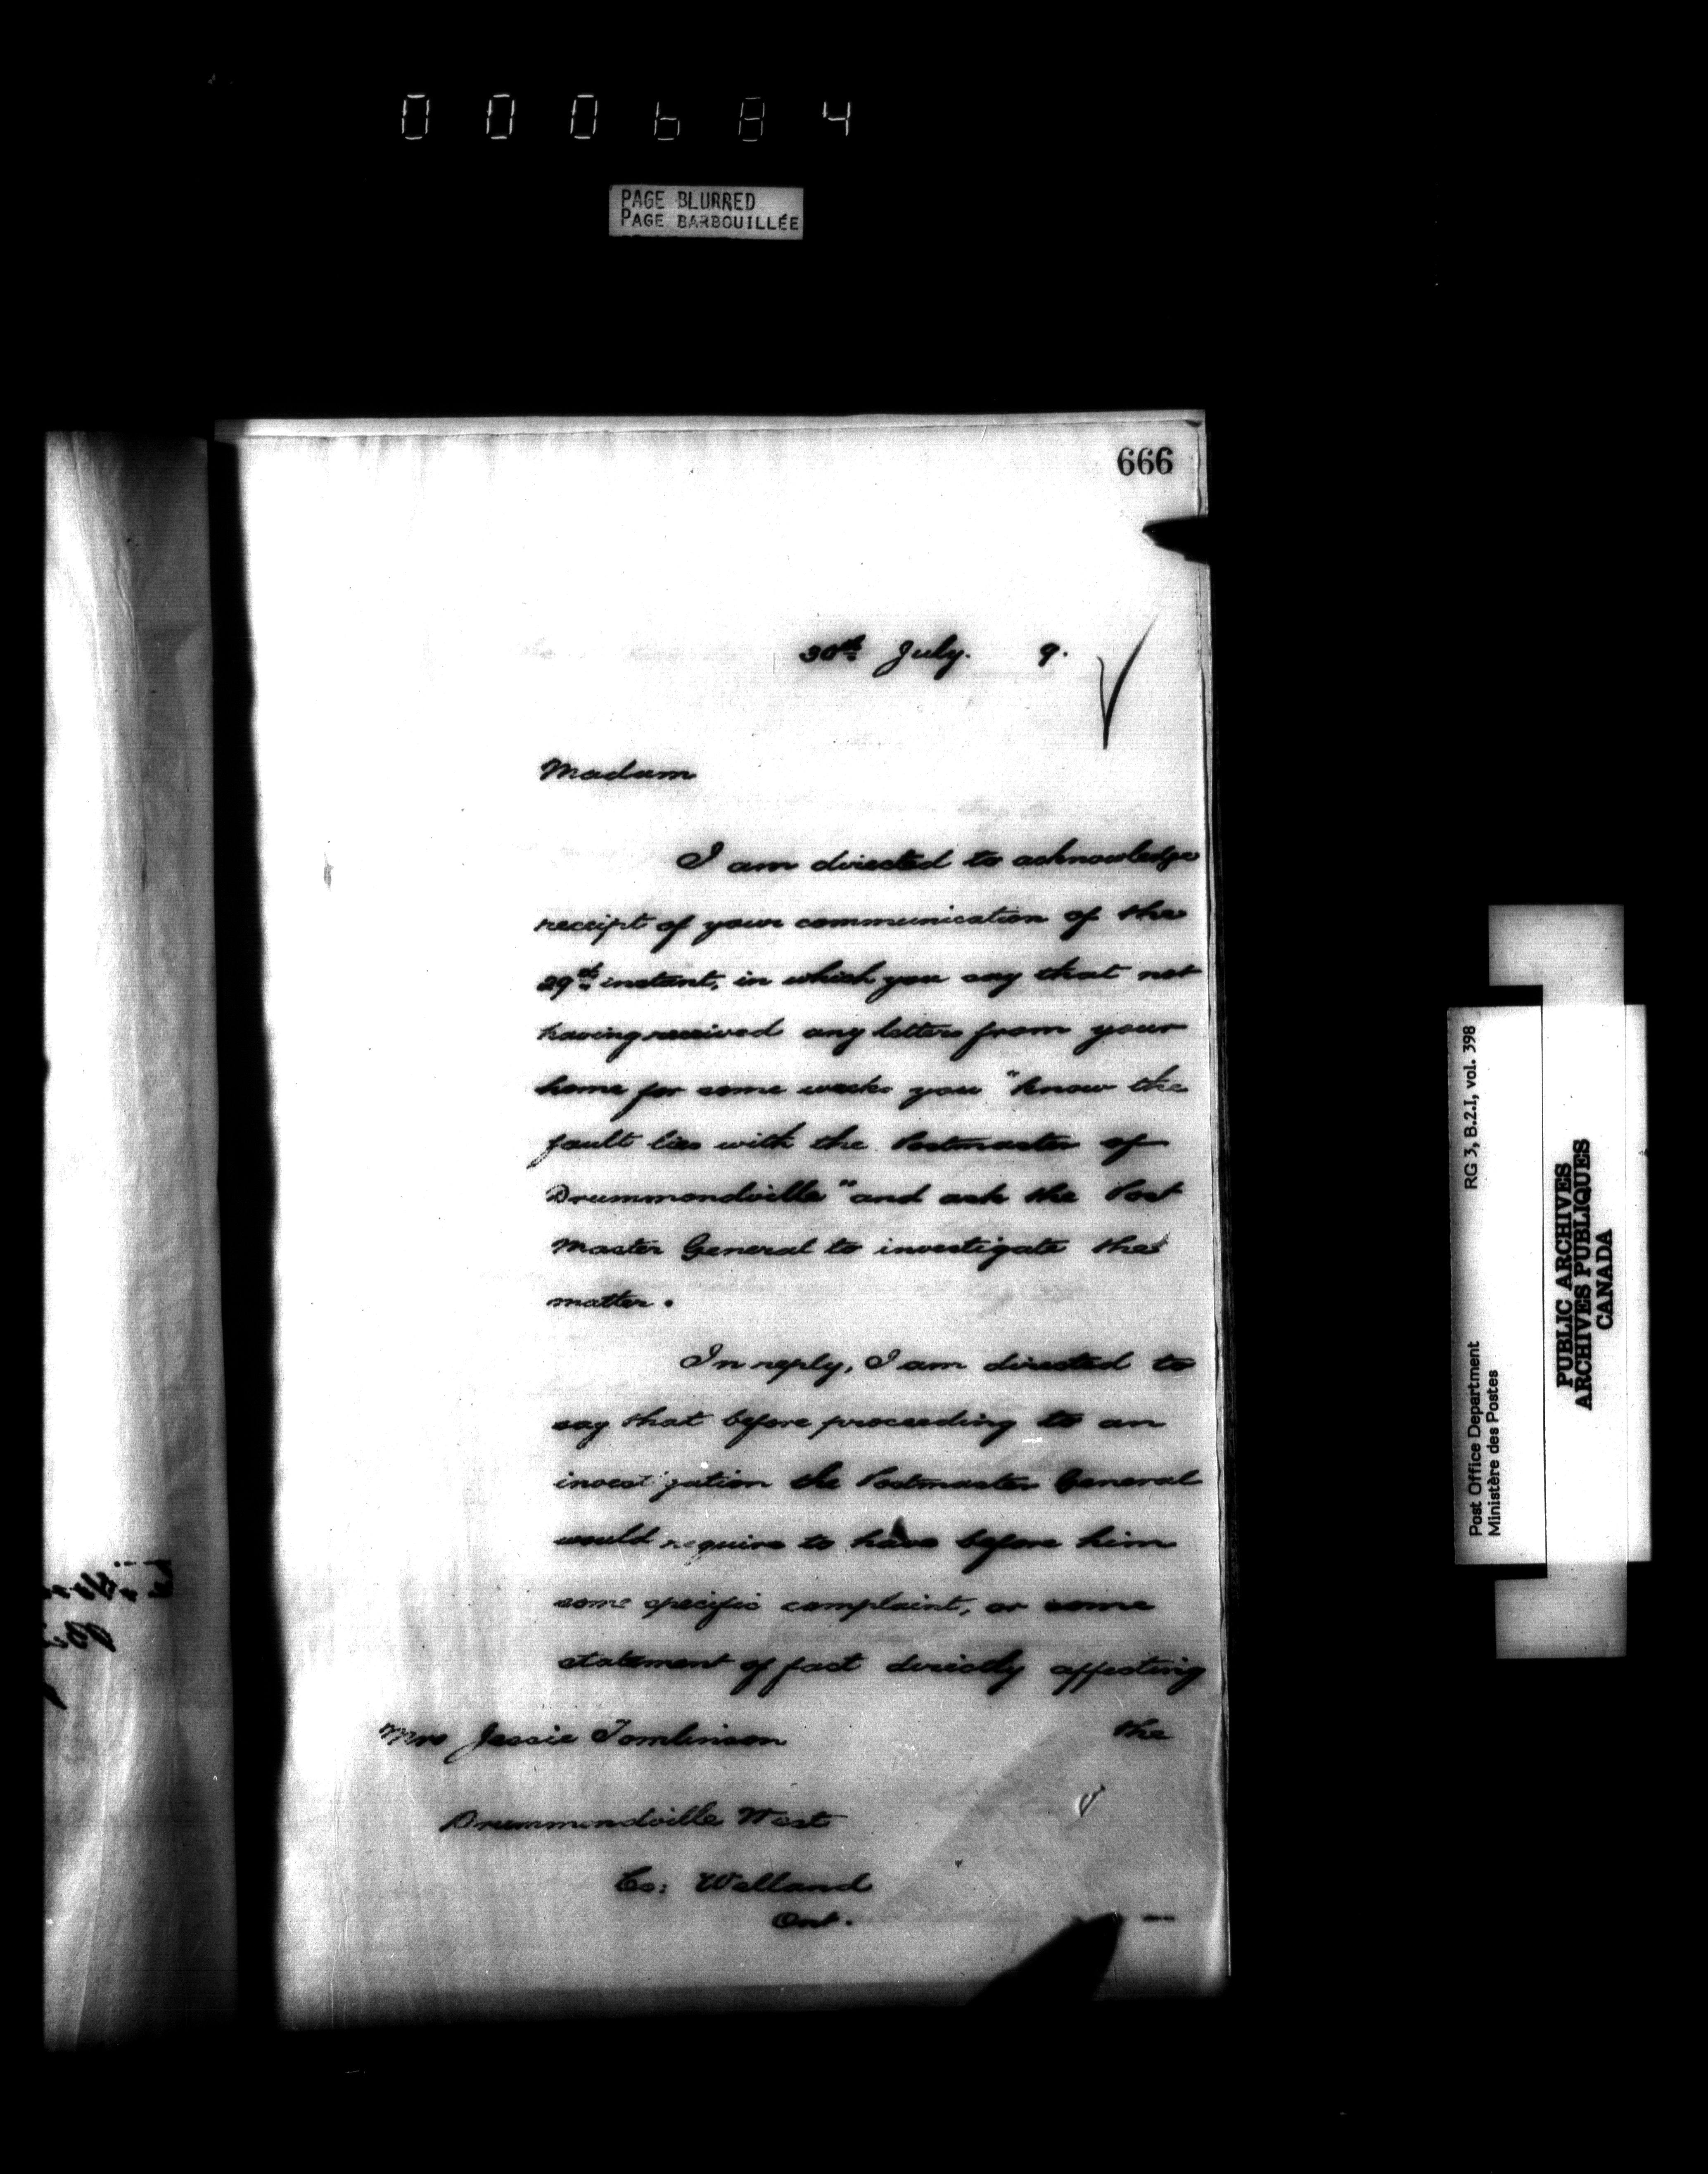 000684
PAGE BLURRED
PAGE BARBOUILLÉE
666
30th July. 9.
Madam
I am directed to acknowledge
receipt of your communication of the
29th instant, in which you say that not
having received any letters from your
home for some weeks you "know the
fault lies with the Postmaster of
Drummondville" and ask the Post
Master General to investigate the
matter.
In reply, I am directed to
say that before proceeding to an
investigation the Postmaster General
would require to have before him
some specific complaint, or some
statement of fact directly affecting
the
Mrs Jessie Tomlinson
Drummondville West
Co: Welland
Ont.
RG 3, B.2.I, vol. 398
Post Office Department
Ministère des Postes
PUBLIC ARCHIVES
ARCHIVES PUBLIQUES
CANADA